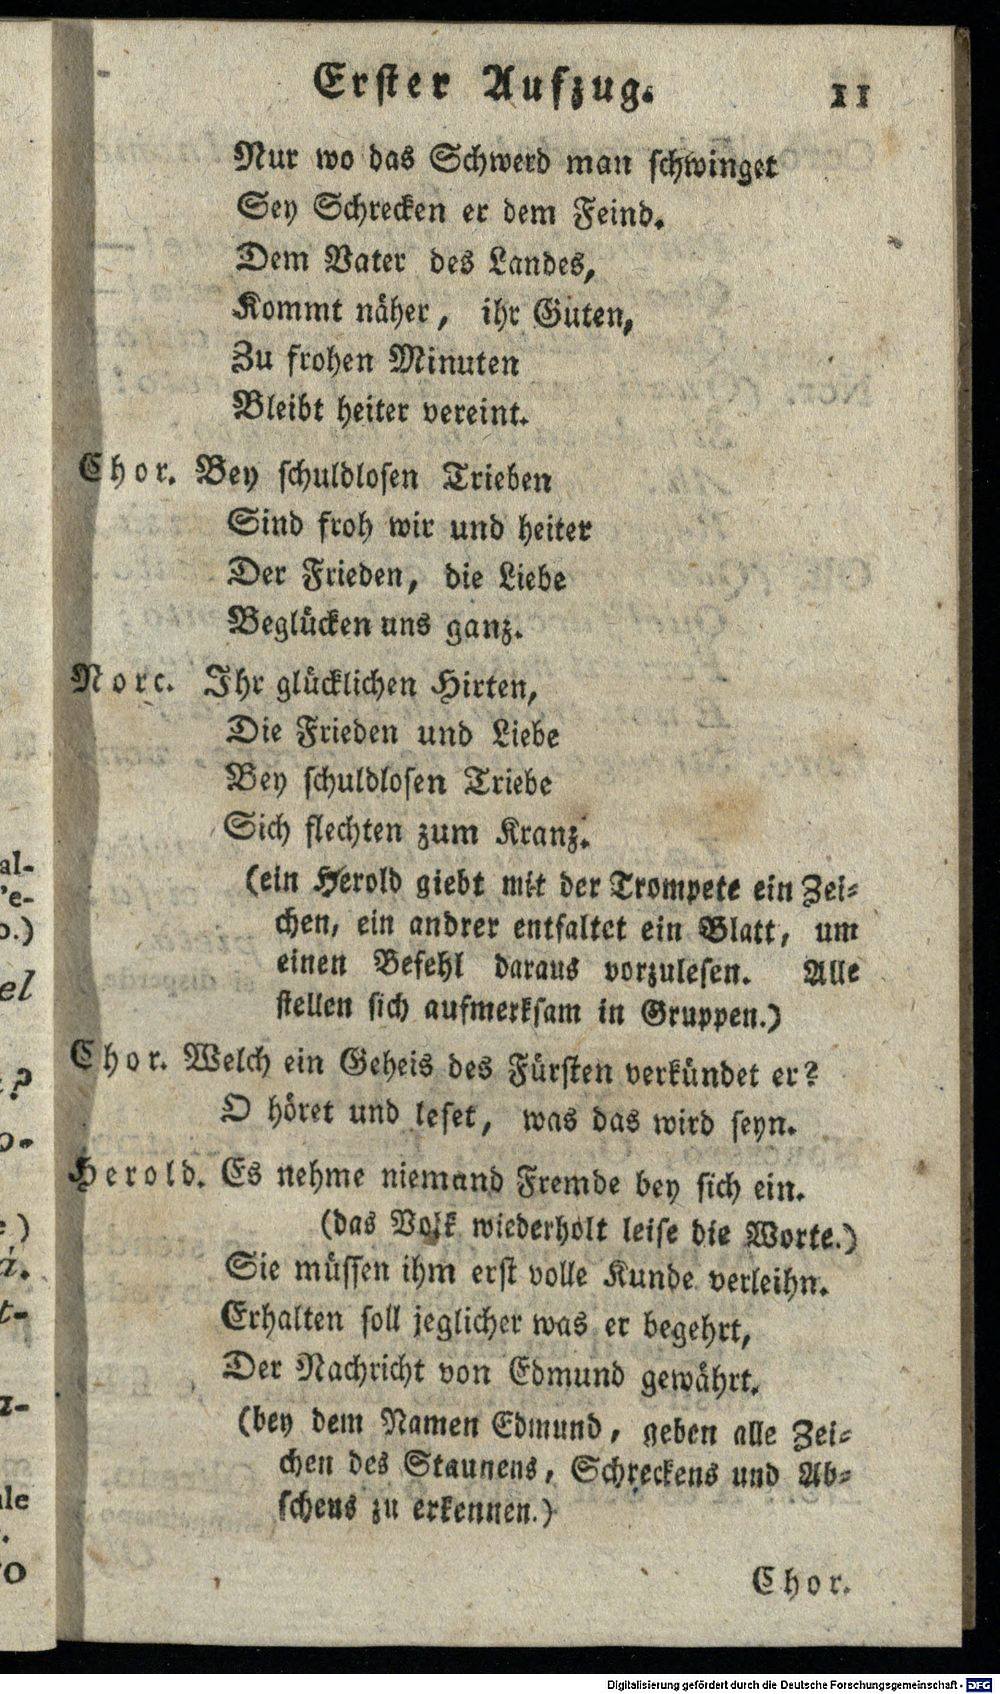 Erster Aufzug. 11
Nur wo das Schwerd man schwinget
Sey Schrecken er dem Feind.
Dem Vater des Landes,
Kommt näher, ihr Guten,
Zu frohen Minuten
Bleibt heiter vereint.
Chor. Bey schuldlosen Trieben
Sind froh wir und heiter
Der Frieden, die Liebe
Beglücken uns ganz.
Norc. Ihr glücklichen Hirten,
Die Frieden und Liebe
Bey schuldlosen Triebe
Sich flechten zum Kranz.
(ein Herold giebt mit der Trompete ein Zei-
chen, ein andrer entfaltet ein Blatt, um
einen Befehl daraus vorzulesen. Alle
stellen sich aufmerksam in Gruppen.)
Chor. Welch ein Geheis des Fürsten verkündet er?
O höret und leset, was das wird seyn.
Herold. Es nehme niemand Fremde bey sich ein.
(das Volk wiederholt leise die Worte.)
Sie müssen ihm erst volle Kunde verleihn.
Erhalten soll jeglicher was er begehrt,
Der Nachricht von Edmund gewährt.
(bey dem Namen Edmund, geben alle Zei-
chen des Staunens, Schreckens und Ab-
scheus zu erkennen.)
Chor.
al-
'e-
o.)
el
?
o-
e)
á.
t-
a-
ale
ro
Digitalisierung gefördert durch die Deutsche Forschungsgemeinschaft - DFG